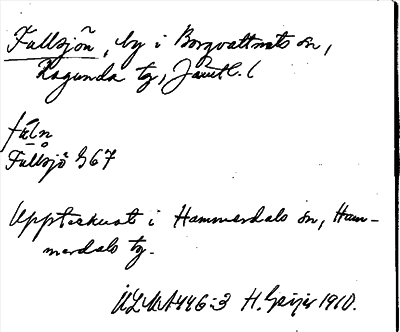 Fullsjön, by i Borgvattnets sn,
Ragunda tg, Jämtl. l
fúln
Fullsjö 367
Upptecknat i Hammerdals sn, Ham-
merdals tg.
ULMA 446:3 H. Geijer 1910.